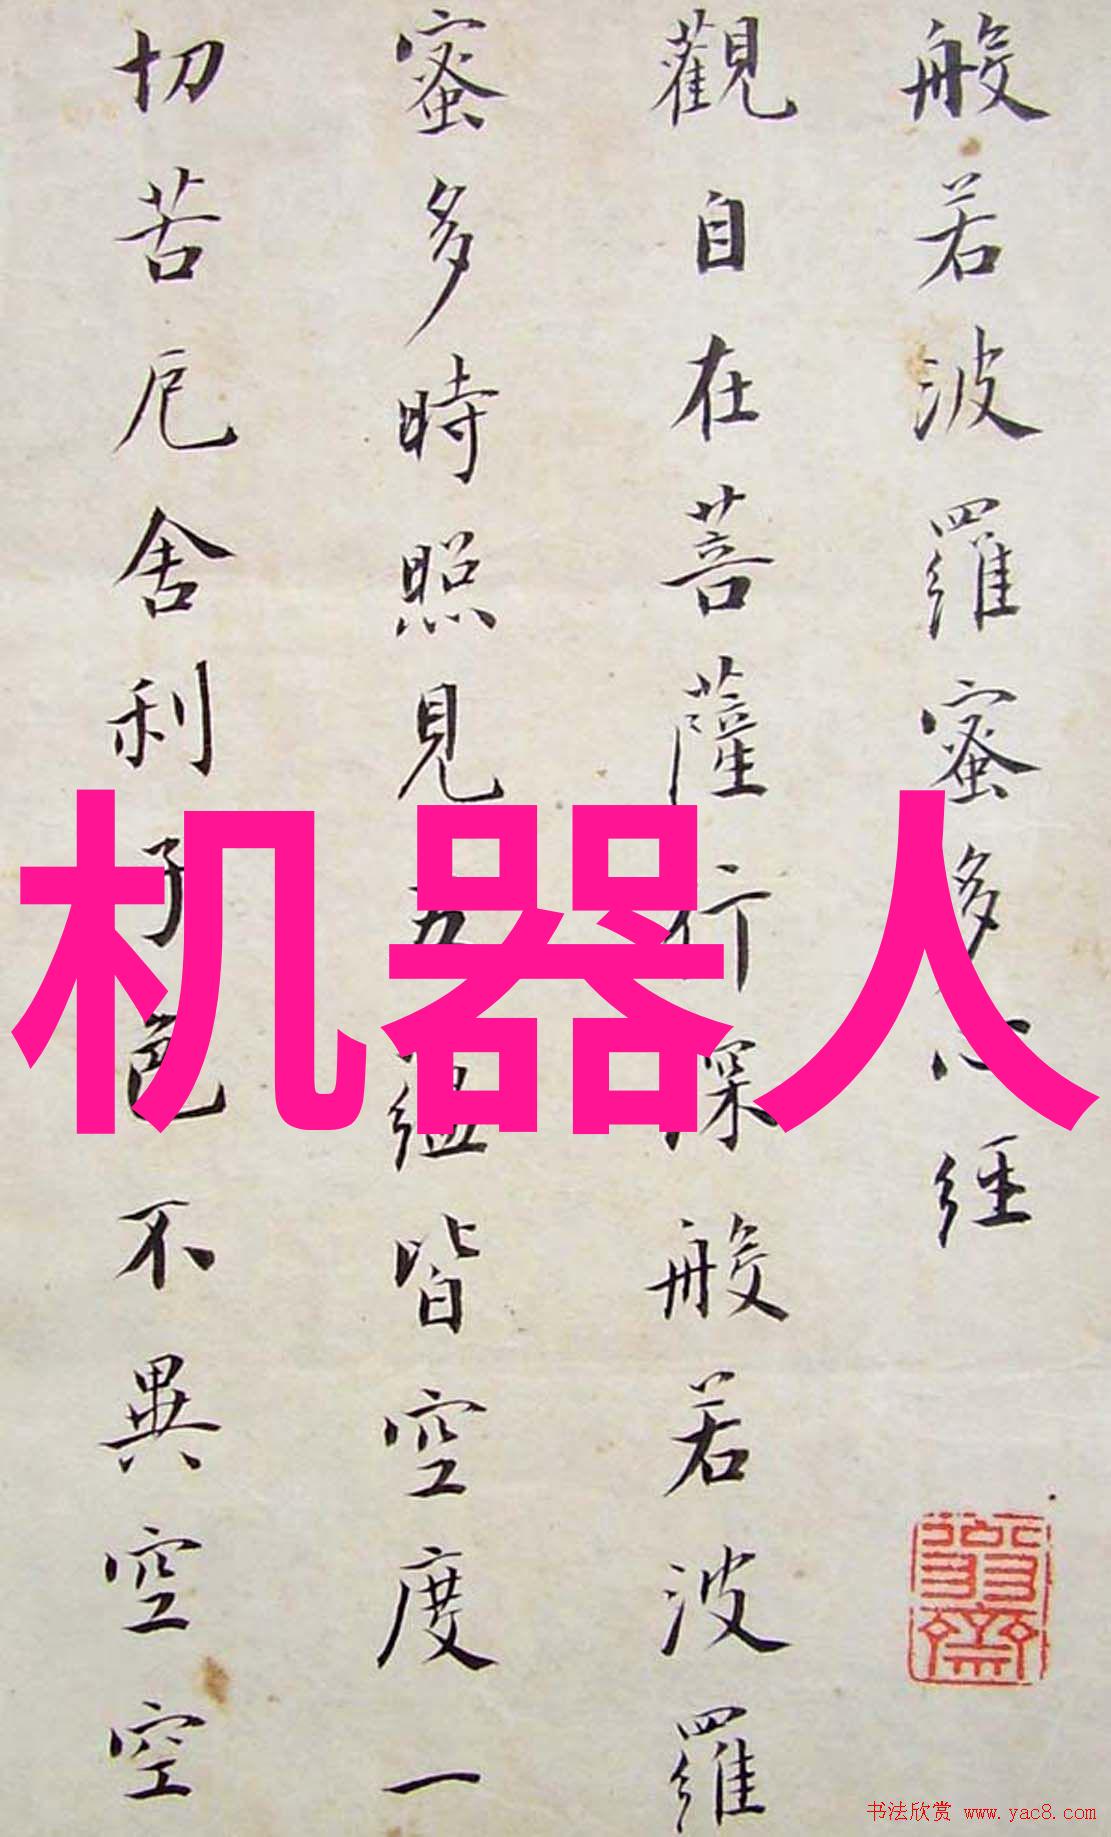 般若波羅蜜多心経
觀自在菩薩行深般若波羅
蜜多時照見五蘊皆空度一
切苦厄舍利子色不異空空
机器人
书法欣赏 www.yac8.com